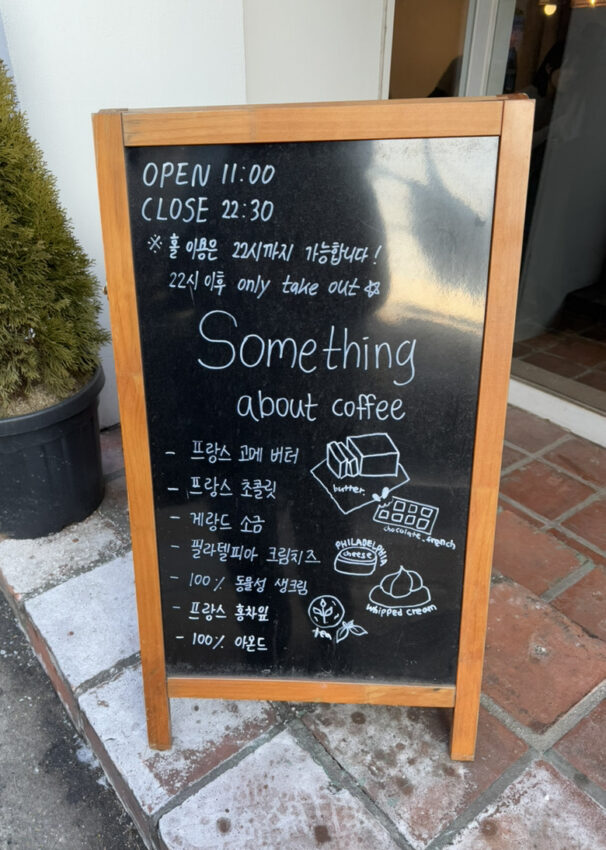 OPEN 11:00
CLOSE 22:30
※ 홀 이용은 22시까지 가능합니다!
22시 이후 only take out ☆
Something
about coffee
- 프랑스 고메 버터
- 프랑스 초콜릿
- 게랑드 소금
- 필라델피아 크림치즈
- 100% 동물성 생크림
- 프랑스 홍차잎
- 100% 아몬드
butter
chocolate.french
PHILADELPHIA
cheese
whipped cream
tea